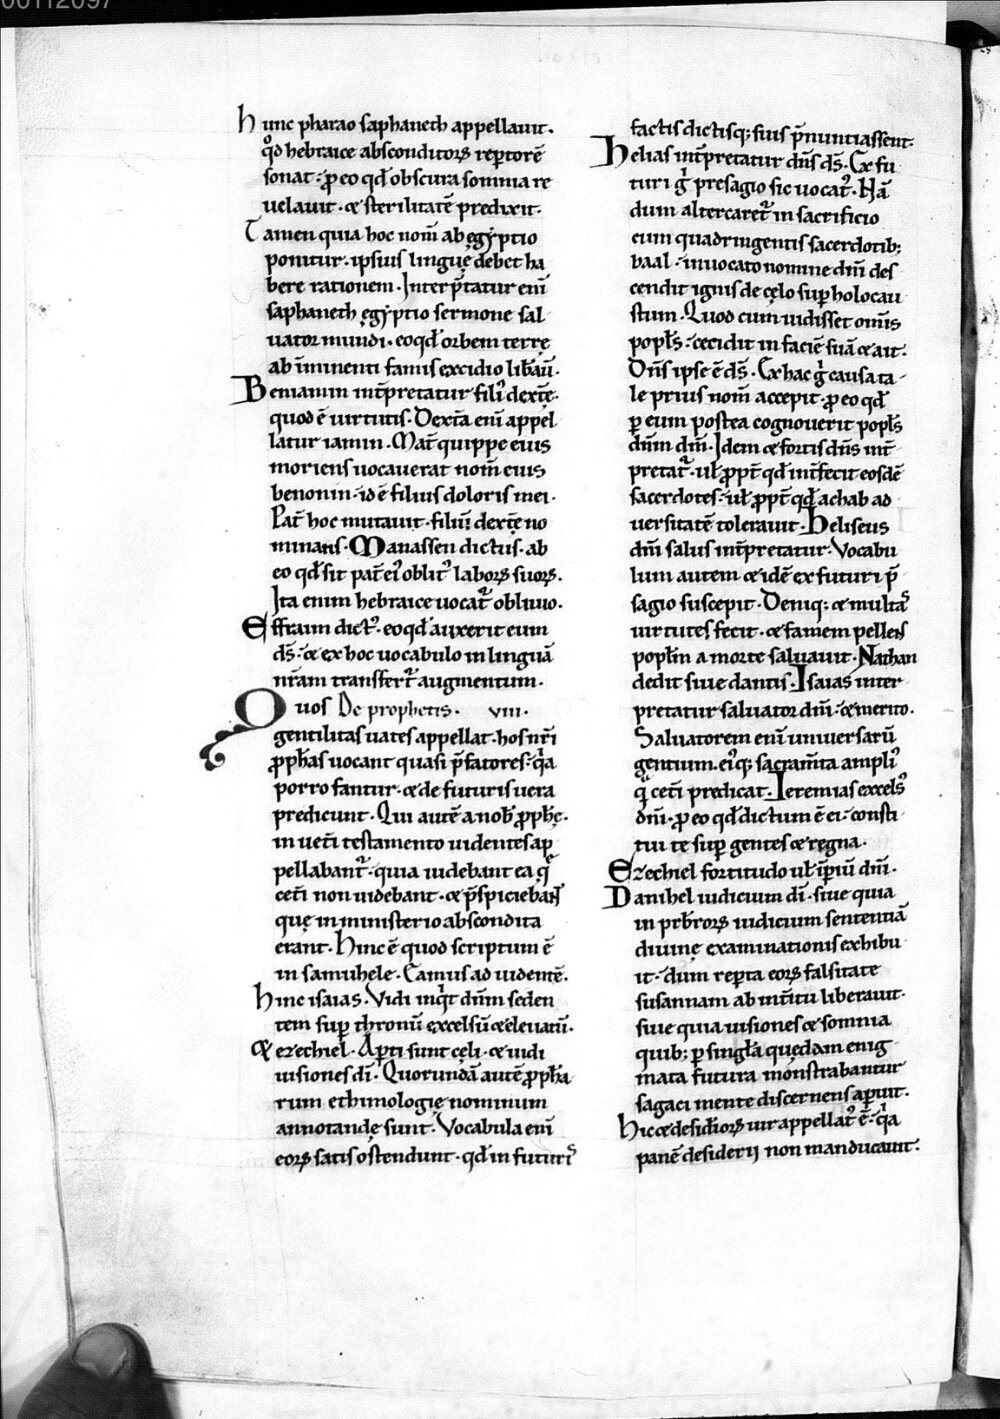 00112097
hunc pharao saphaneth appellauit.
qd̊ hebraice absconditoꝝ reꝑtorē
sonat · ꝓ eo qđ obscura somnia re
uelauit · & sterilitatē predixit.
Tamen quia hoc nom̄ ab egyptio
ponitur · ipsius linguę debet ha
bere rationem · Interp̄tatur eni̅
saphaneth ęgyptio sermone sal
uator mundi · eo qđ orbem terrę
ab i̅minenti famis excidio lib̅au̅.
Beniamin int̅pretatur fili᾽ dextę.
quod ē uirtutis. Dext̅a eni̅ appel
latur iamin. Mat̅ quippe eius
moriens uocauerat nom̄ eius
benonin · id ē filius doloris mei.
Pat̅ hoc mutauit · filiu̅ dext̅ę no
minans · Manassen dictus · ab
eo qđ sit pat̅ ei᾽ oblit᾽ laboꝝ suoꝝ.
Ita enim hebraice uocat᷑ obliuio.
Effraim dict᾽ · eo qđ auxerit eum
ds̅ · & ex hoc uocabulo in linguā
nr̅am transfert᷑ augmentum.
Quos De prophetis. viii.
gentilitas uates appellat · hos nr̅i
ꝓph̅as uocant quasi p̅fatores · q̇a
porro fantur · & de futuris uera
predicunt. Qui autē a nob̅ ꝓph̅ę.
in uet̅i testamento uidentes ap
pellabant᷑ · quia uidebant ea q̄
cet̅i non uidebant · & p̅spiciebant
quę in ministerio abscondita
erant. Hinc ē quod scriptum ē
in samuhele. Eamus ad uidentē.
hinc isaias. Vidi inq̇t dn̅m seden
tem suꝑ thronu̅ excelsu̅ & eleuatu̅.
& ezechiel. Aꝑti sunt cęli · & uidi
uisiones di̅. Quorundā autē ꝓph̅a
rum ethimologię nominum
annotandę sunt. Vocabula eni̅
eoꝝ satis ostendunt · qđ in futuris
factis dictisq; suis p̅nuntiassent.
Helias int̅pretatur dn̅s ds̅. Ex fu
turi g̊ presagio sic uocat᾽. Nā
dum altercaret᷑ in sacrificio
cum quadringentis sacerdotib;
baal · inuocato nomine dn̅i des
cendit ignis de cęlo suꝑ holocau
stum. Quod cum uidisset om̅is
popl̅s · cecidit in faciē suā & ait.
Dn̅s ipse ē ds̅. Ex hac g̊ causa ta
le prius nom̄ accepit · ꝓ eo qđ
ꝑ eum postea cognouerit popl̅s
dn̅m dm̅. Idem & fortis dn̅s int̅
pretat᷑ · ul̅ ꝓpt̅ qđ int̅fecit eosdē
sacerdotes · ul̅ ꝓpt̅ qđ achab ad
uersitatē tolerauit. Heliseus
dn̅i salus int̅pretatur. Vocabu
lum autem & idē ex futuri p̅
sagio suscepit. Deniq; & multas
uirtutes fecit · & famem pellens
popl̅m a morte saluauit. Nathan
dedit siue dantis. Isaias inter
pretatur saluator dn̅i · & merito.
Saluatorem eni̅ uniuersaru̅
gentium. ei᾽q; sacram̅ta ampli᾽
q̄ cet̅i predicat. Ieremias excels᾽
dn̅i · ꝓ eo qđ dictum ē ei · consti
tui te suꝑ gentes & regna.
Ezechiel fortitudo ul̅ i̅ꝑiu̅ dn̅i.
Danihel iudicium di̅ · siue quia
in prb̅roꝝ iudicium sententiā
diuinę examinationis exhibu
it · dum reꝑta eoꝝ falsitate
susannam ab int̅itu liberauit.
siue quia uisiones & somnia
quib; ꝑ singl̅a quędam enig
mata futura monstrabantur
sagaci mente discernens aꝑuit.
hic & desid̅ioꝝ uir appellat᾽ ē · q̇a
panē desiderij non manducauit.